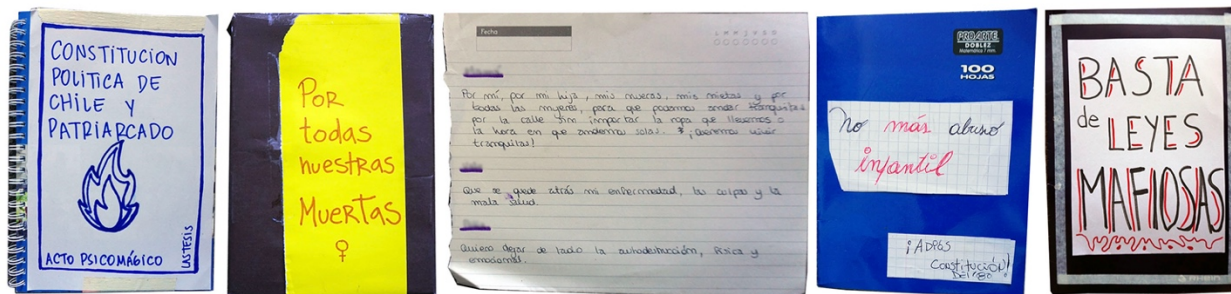 CONSTITUCION
POLITICA DE
CHILE Y
PATRIARCADO
ACTO PSICOMÁGICO
LASTESIS
POR
todas
nuestras
MUERTAS
Fecha
L M M J V S D
Por mí, por mi hija, mis nueras, mis nietas y por
todas las mujeres, para que podamos andar tranquilas
por la calle sin importar la ropa que llevemos o
la hora en que andemos solas. ¡Queremos vivir
tranquilas!
Que se quede atrás mi enfermedad, las culpas y la
mala salud.
Quiero dejar de lado la autodestrucción, física y
emocional.
PROARTE
DOBLEZ
Matemática 7 mm.
100
HOJAS
No más abuso
infantil
¡ADIOS
Constitución!
Del 80
BASTA
de LEYES
MAFIOSAS